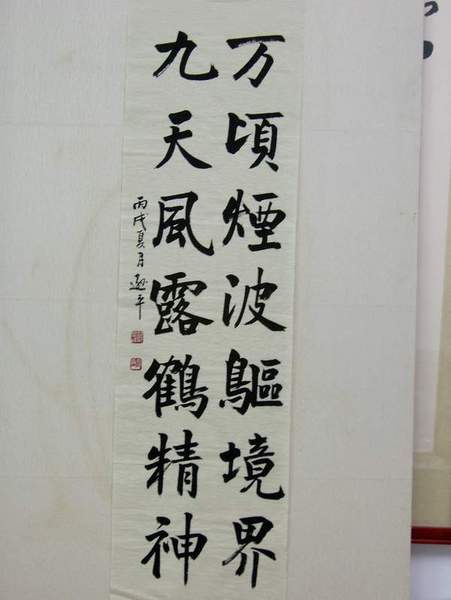 万頃煙波鷗境界
九天風露鶴精神
丙戌夏月平